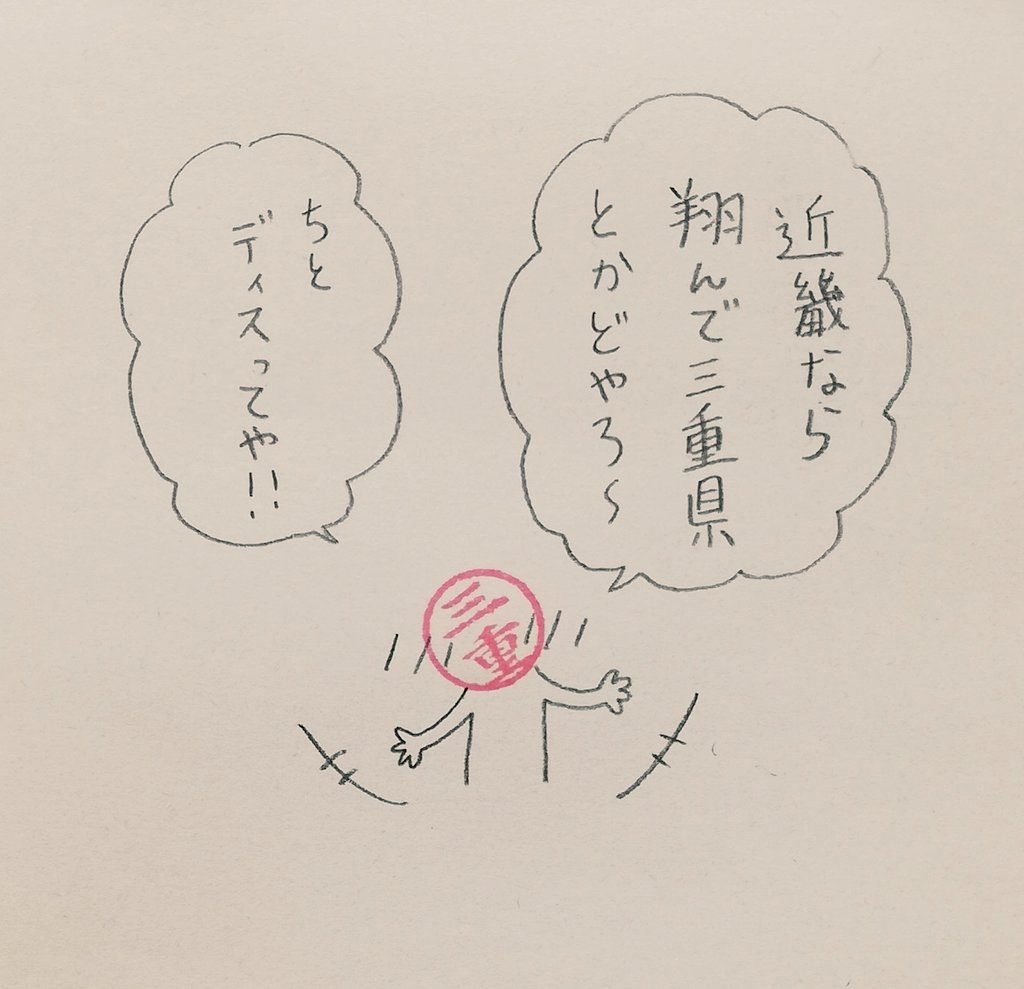 近畿なら
翔んで三重県
とかどやろ〜
ちと
ディスってや!!
三重